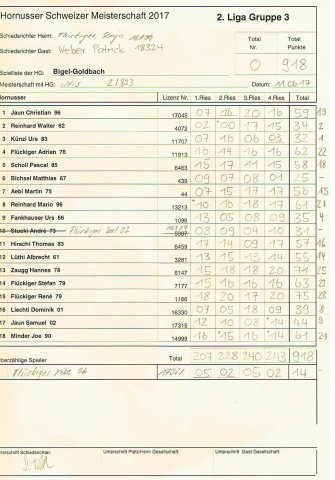 Hornusser Schweizer Meisterschaft 2017 2. Liga Gruppe 3
Schiedsrichter Heim: Flückiger
Schiedsrichter Gast: Weber Patrick 18324
Total Nr. Total Punkte
0 918
Spielliste der HG: Bigel-Goldbach
Meisterschaft mit HG: 2/893 Datum: 11.06.17
Hornusser Lizenz Nr. 1.Ries 2.Ries 3.Ries 4.Ries Total
1 Jaun Christian 96 17045 07 16 20 16 59 19
2 Reinhard Walter 62 4072 02 00 17 15 34 2
3 Künzi Urs 83 11707 07 16 06 03 32 1
4 Flückiger Adrian 76 11913 16 14 16 16 62 22
5 Scholl Pascal 85 6463 15 17 11 15 58 18
6 Bichsel Matthias 67 439 09 07 08 01 25 -
7 Aebi Martin 75 44 07 15 17 17 56 15
8 Reinhard Mario 96 13213 10 16 18 17 61 21
9 Fankhauser Urs 56 1096 13 05 08 09 35 4
10 Stucki André 73 Flückiger 02 5367 08 09 04 10 31 -
11 Hirschi Thomas 83 6459 17 14 09 17 57 16
12 Lüthi Albrecht 61 3281 13 15 13 14 55 14
13 Zaugg Hannes 78 6147 15 18 18 20 71 25
14 Flückiger Stefan 79 7177 15 16 16 16 63 23
15 Flückiger René 79 1166 18 20 17 20 75 28
16 Liechti Dominik 01 16330 07 05 18 09 39 8
17 Jaun Samuel 02 17315 12 10 08 14 44 9
18 Minder Joe 90 14999 16 15 16 14 61 21
Überzählige Spieler Total 207 228 240 243 918
Flückiger 06 05 02 05 02 14 -
Unterschrift Schiedsrichter: Unterschrift Platz/Heim Gesellschaft: Unterschrift Gast Gesellschaft: